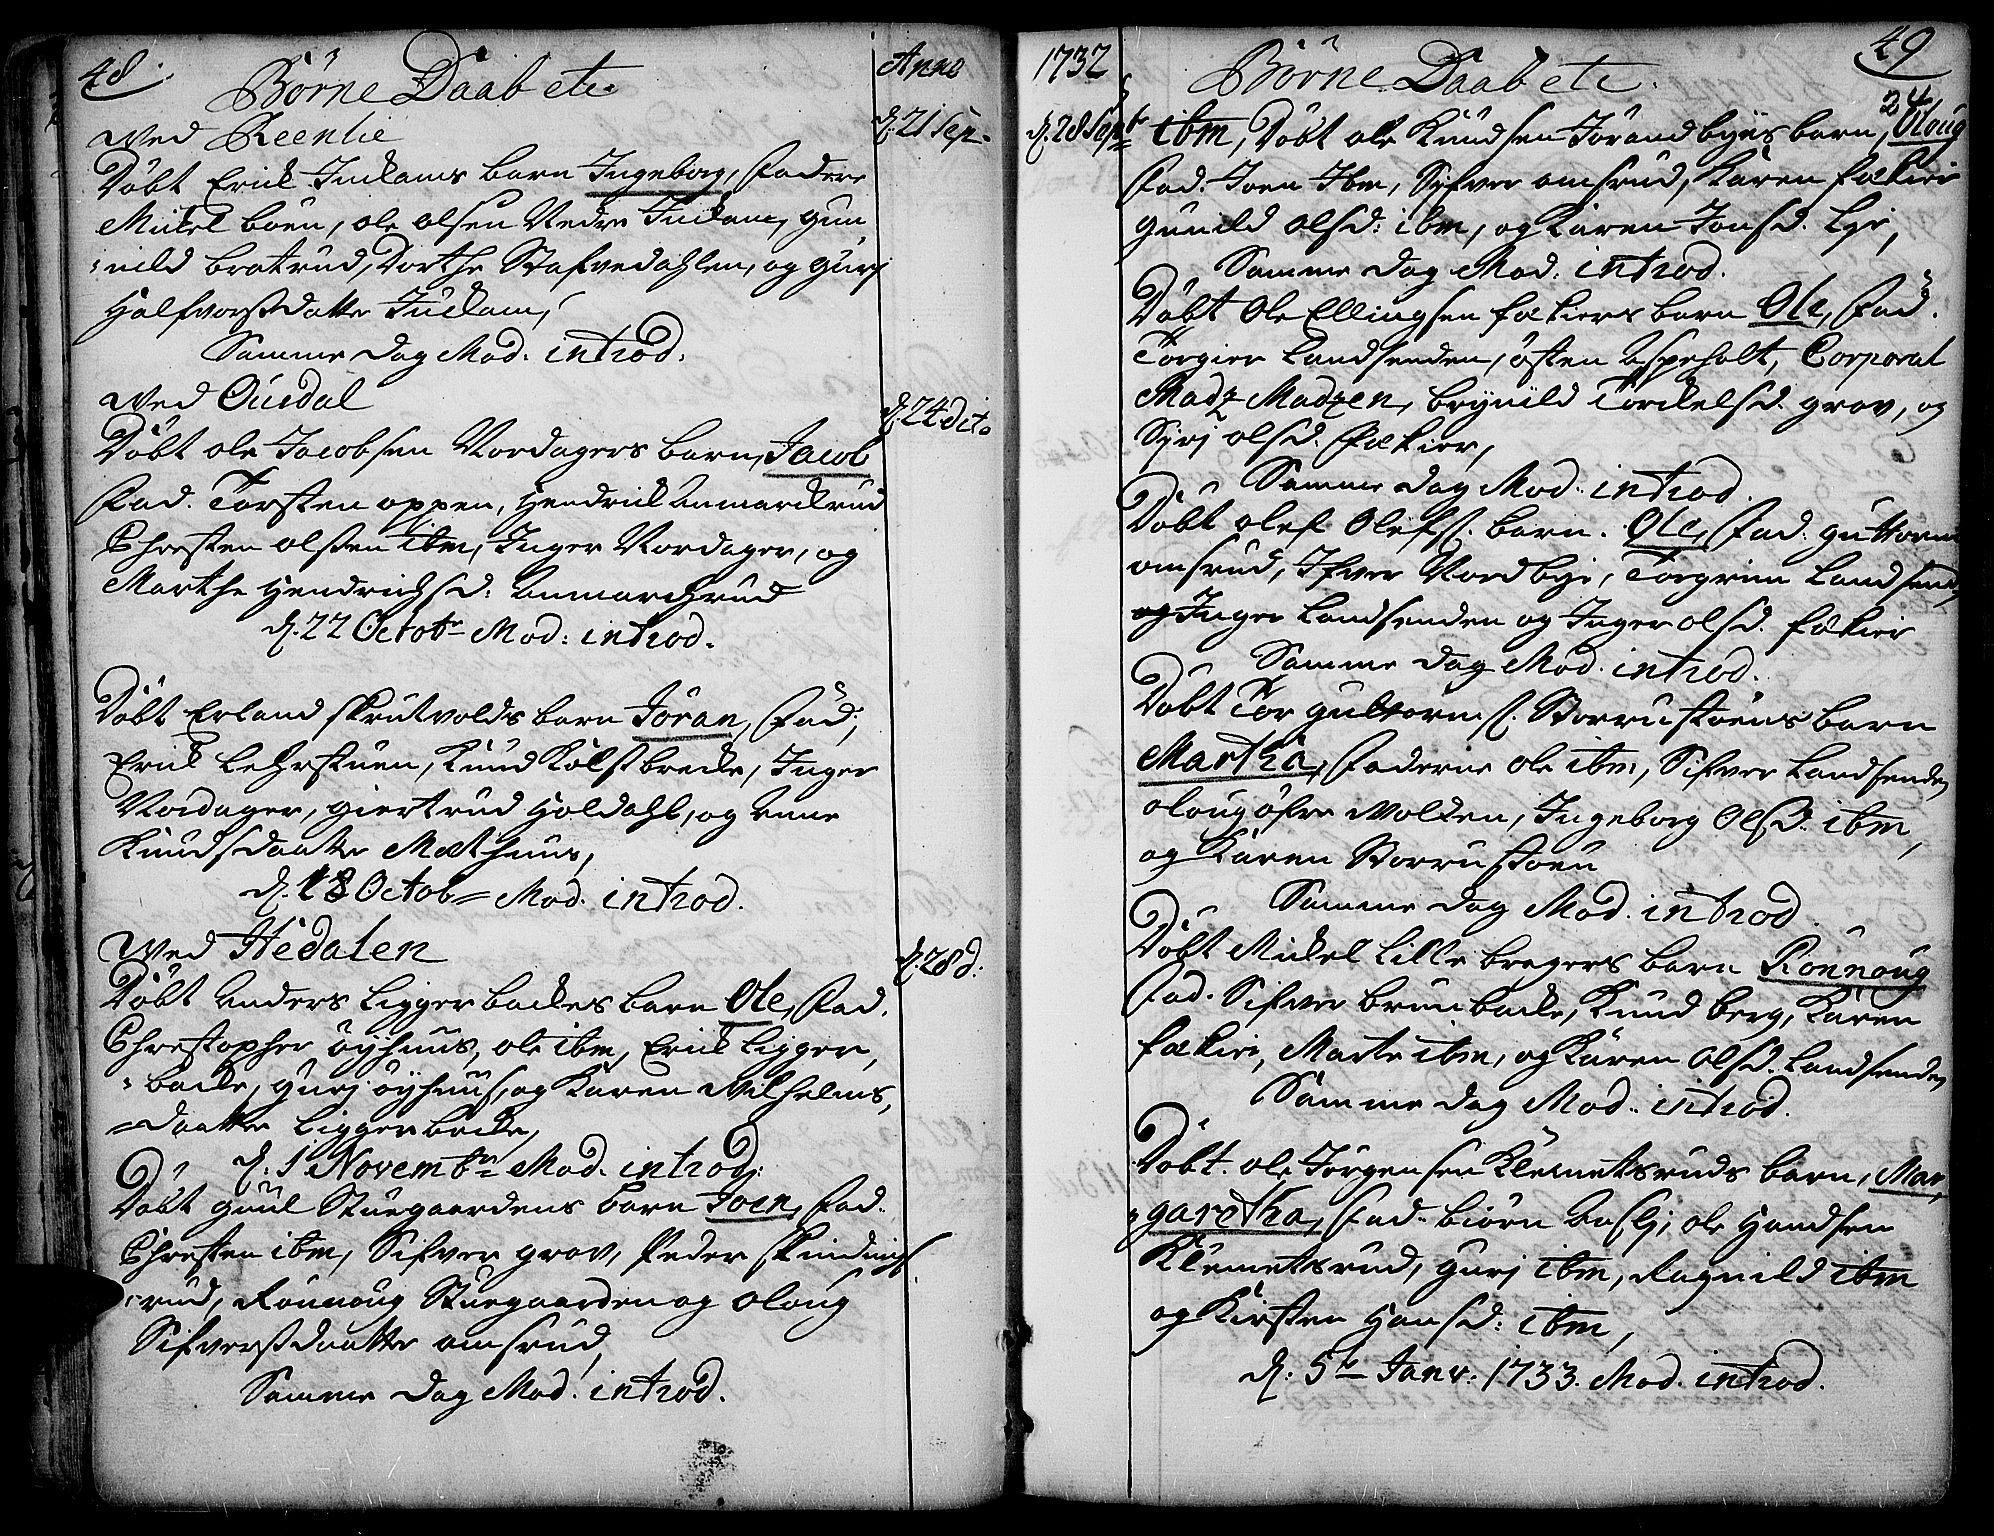 48.
Börne Daab etc.
Anno
Ved Reenlie
d. 21 Sep.
Döbt Erick Juclams barn Ingeborg, Fadere
Mickel böen, ole olsen Nedre Juclam, gun
nild bratrud, Dorthe Stafvedahlen, og gurj
Halfvorsdatte Juclam,
Samme dag Mod. introd.
Ved Ourdal
d. 24 dito
Döbt ole Jacobsen Nordagers barn, Jacob
Fad. Torsten oppen, Hendrick
Christen olsten ibm, Inger Nordager, og
Marthe Hendrichsd.
d. 22 Octobr Mod: introd.
Döbt Erland skrutvolds barn Jöran, Fad;
Erick Lehrstuen, Knud Kolsbrecke, Inger
Nordager, giertrud Holdahl, og Anne
Knudsdaatter Mæthuus,
d. 18 Octob= Mod. introd.
Ved Hedalen
d. 28 d:
Döbt Anders Liggerbackes barn Ole, Fad.
Christopher öyhuus, ole ibm, Erick Ligger,
backe, gurj öyhuus, og Karen Wilhelms,
=daatter Liggerbacke,
d. 1 Novembr Mod. introd;
Döbt guul Stuegaardens barn Joen, Fad.
Christen ibm, Sifver grov, Peder skindings
rud, Rönnoug Stuegaarden og oloug
Sifversdaatter omsrud,
Samme dag Mod. introd.
1732
Börne Daab etc.
49
24
d. 28 Septbr
ibm, Döbt ole Knudsen Jörandbyes barn, Oloug
Fad. Joen Ibm, Sifver omsrud, Karen fækier
gunild olsd: ibm, og Karen Jonsd. Lie,
Samme dag Mod: introd.
Döbt Ole Ellingsen fækiers barn Ole, Fad.
Torgier Landsenden, östen Aspeholt, Corporal
Madz Madzen, brynild Torckelsd. grov, og
Sirj olsd. Fækier,
Samme dag Mod: introd.
Döbt olef Olefs. barn. Ole, Fad. guttorm
omsrud, Ifver Nordbye, Torgrim Landsend,
og Inger Landsenden og Inger olsd. fækier
Samme dag Mod. introd.
Döbt Tor gultorms. Storrustöens barn
Martha, Faderne ole ibm, Sifver Landsenden,
oloug öfre Wolden, Ingeborg Olsd. ibm,
og Karen Storrustoen
Samme dag Mod. introd.
Döbt Mickel Lille bragers barn Rönnoug
Fad. Sifver brunbacke, Knud berg, Karen
fækier, Marte ibm, og Karen Olsd. Landsenden
Samme dag Mod: introd.
Döbt. ole Jörgensen Klemetsruds barn, Mar,
garetha, Fad. biörn; ole Handsen
Klemetsrud, gurj ibm, Ragnild ibm
og Kirsten Hansd: ibm,
d. 5te Janv. 1733. Mod. introd.